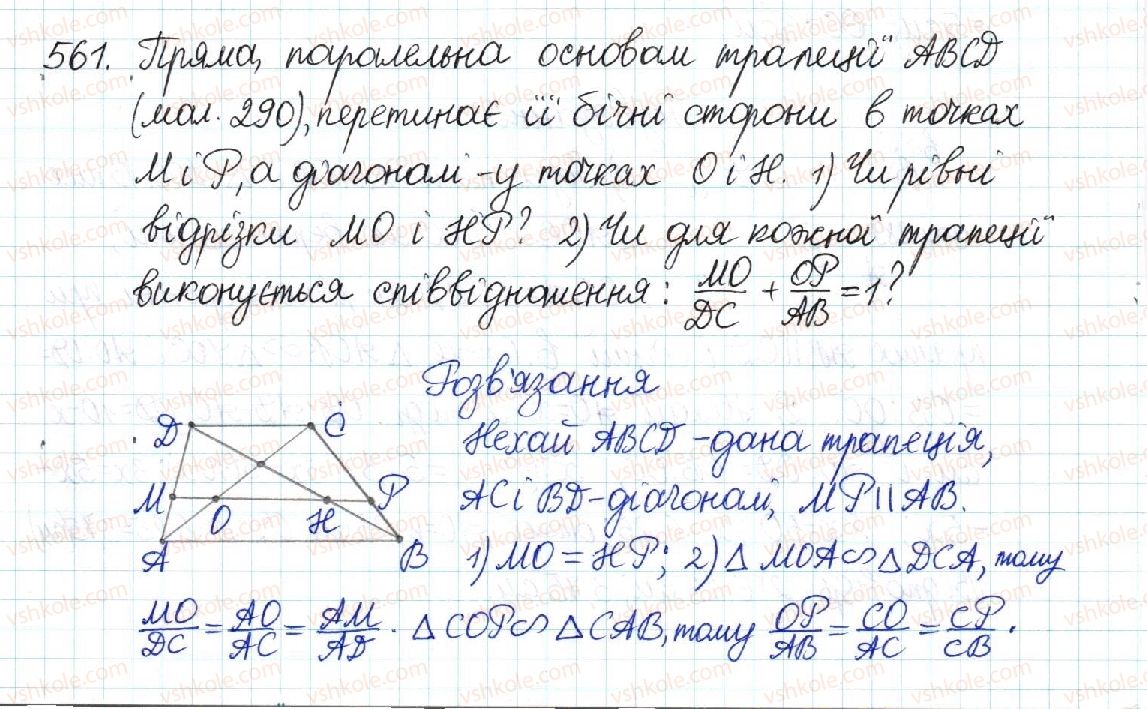 561. Пряма, паралельна основам трапеції ABCD
(мал. 290), перетинає її бічні сторони в точках
M і P, а діагоналі - у точках O і H. 1) Чи рівні
відрізки MO і HP? 2) Чи для кожної трапеції
виконується співвідношення: MO/DC + OP/AB = 1?
Розв'язання
D C
Нехай ABCD - дана трапеція,
M O H P
AC і BD - діагоналі, MP || AB.
A B
1) MO = HP; 2) △ MOA ∽ △ DCA, тому
MO/DC = AO/AC = AM/AD. △ COP ∽ △ CAB, тому OP/AB = CO/AC = CP/CB.
vshkole.com